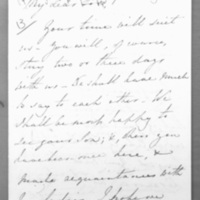 My dear
Yours time will suit
us. You will, of course,
stay two or three days
with us. We shall have much
to say to each other. We
shall be most happy to
see your Son; &, when you
have been once here, &
made acquaintances with